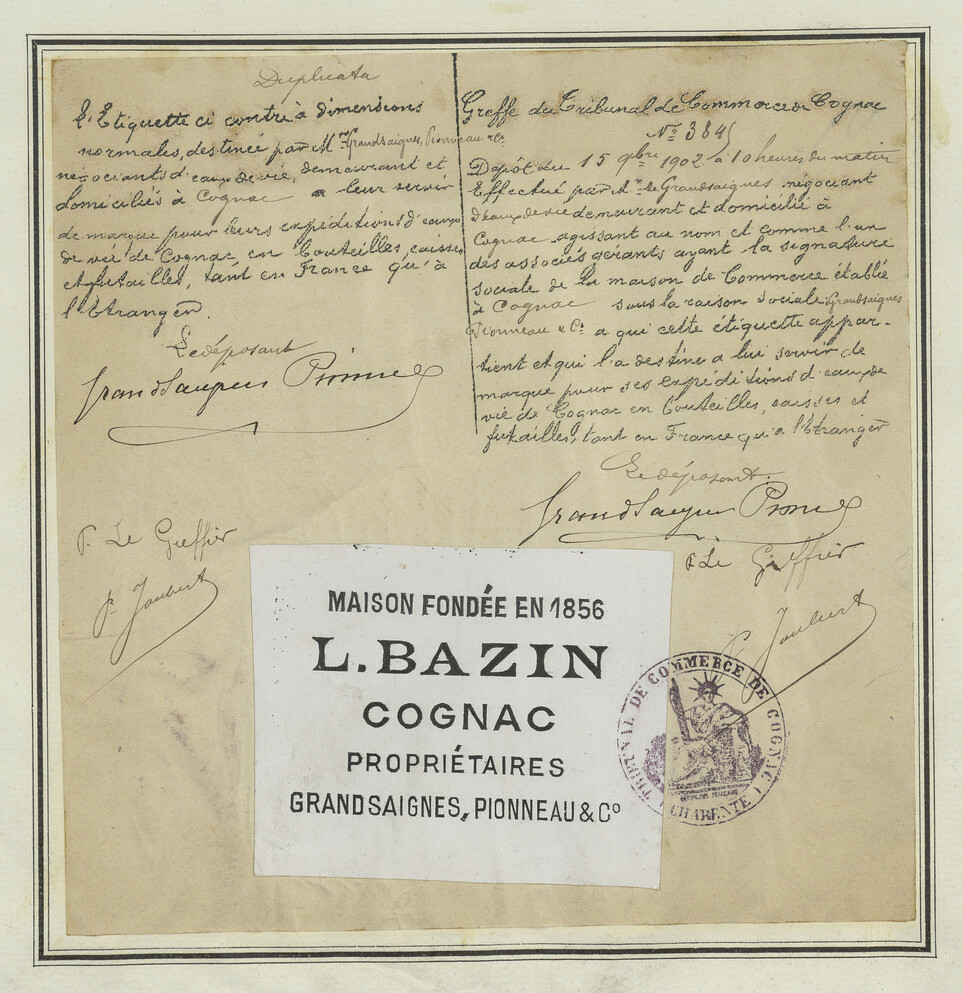 Duplicata
L'Etiquette ci contre à dimensions
normales, destinée par M.rs Grandsaignes, Pionneau & Cº
negociants d'eaux de vie, demeurant et
domiciliés à Cognac a leur servir
de marque pour leurs expéditions d'eaux
de vie de Cognac, en bouteilles, caisses
et futailles, tant en France qu'à
l'Etranger.
Le déposant
Grandsaignes Pionneau
P. Le Greffier
P. Joubert
Greffe du Tribunal de Commerce de Cognac
Nº 3845
Dépôt du 15 9bre 1902 à 10 heures du matin
Effectué par M.r de Grandsaignes négociant
d'eaux de vie demeurant et domicilié à
Cognac agissant au nom et comme l'un
des associés gérants ayant la signature
sociale de la maison de Commerce établie
à Cognac sous la raison sociale Grandsaignes
Pionneau & Cº a qui cette étiquette appar-
tient et qui l'a destine a lui servir de
marque pour ses expéditions d'eaux de
vie de Cognac en bouteilles, caisses et
futailles, tant en France qu'a l'Etranger
Le déposant
Grandsaignes Pionneau
P. Le Greffier
P. Joubert
MAISON FONDÉE EN 1856
L. BAZIN
COGNAC
PROPRIÉTAIRES
GRANDSAIGNES, PIONNEAU & Cº
TRIBUNAL DE COMMERCE DE COGNAC
(CHARENTE)